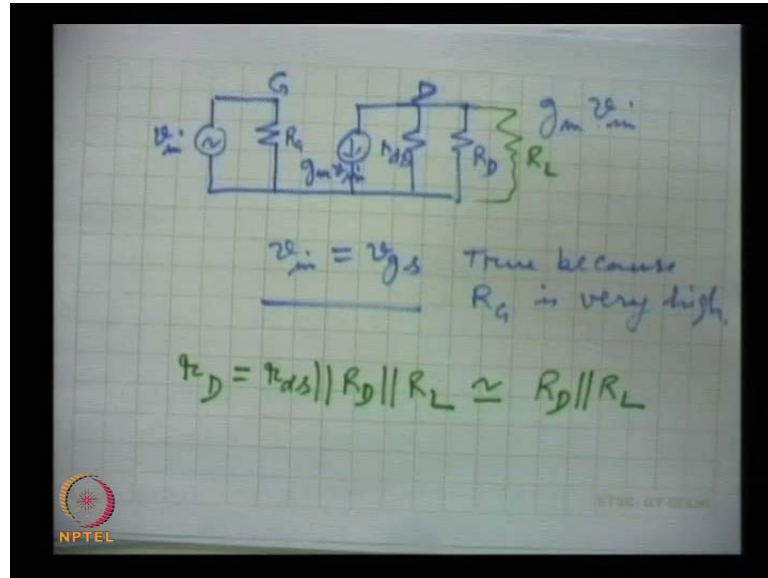 G
D
g_m v_in
v_in
R_G
g_m v_in
r_ds
R_D
R_L
v_in = v_gs True because
R_G is very high.
r_D = r_ds || R_D || R_L ≃ R_D || R_L
NPTEL